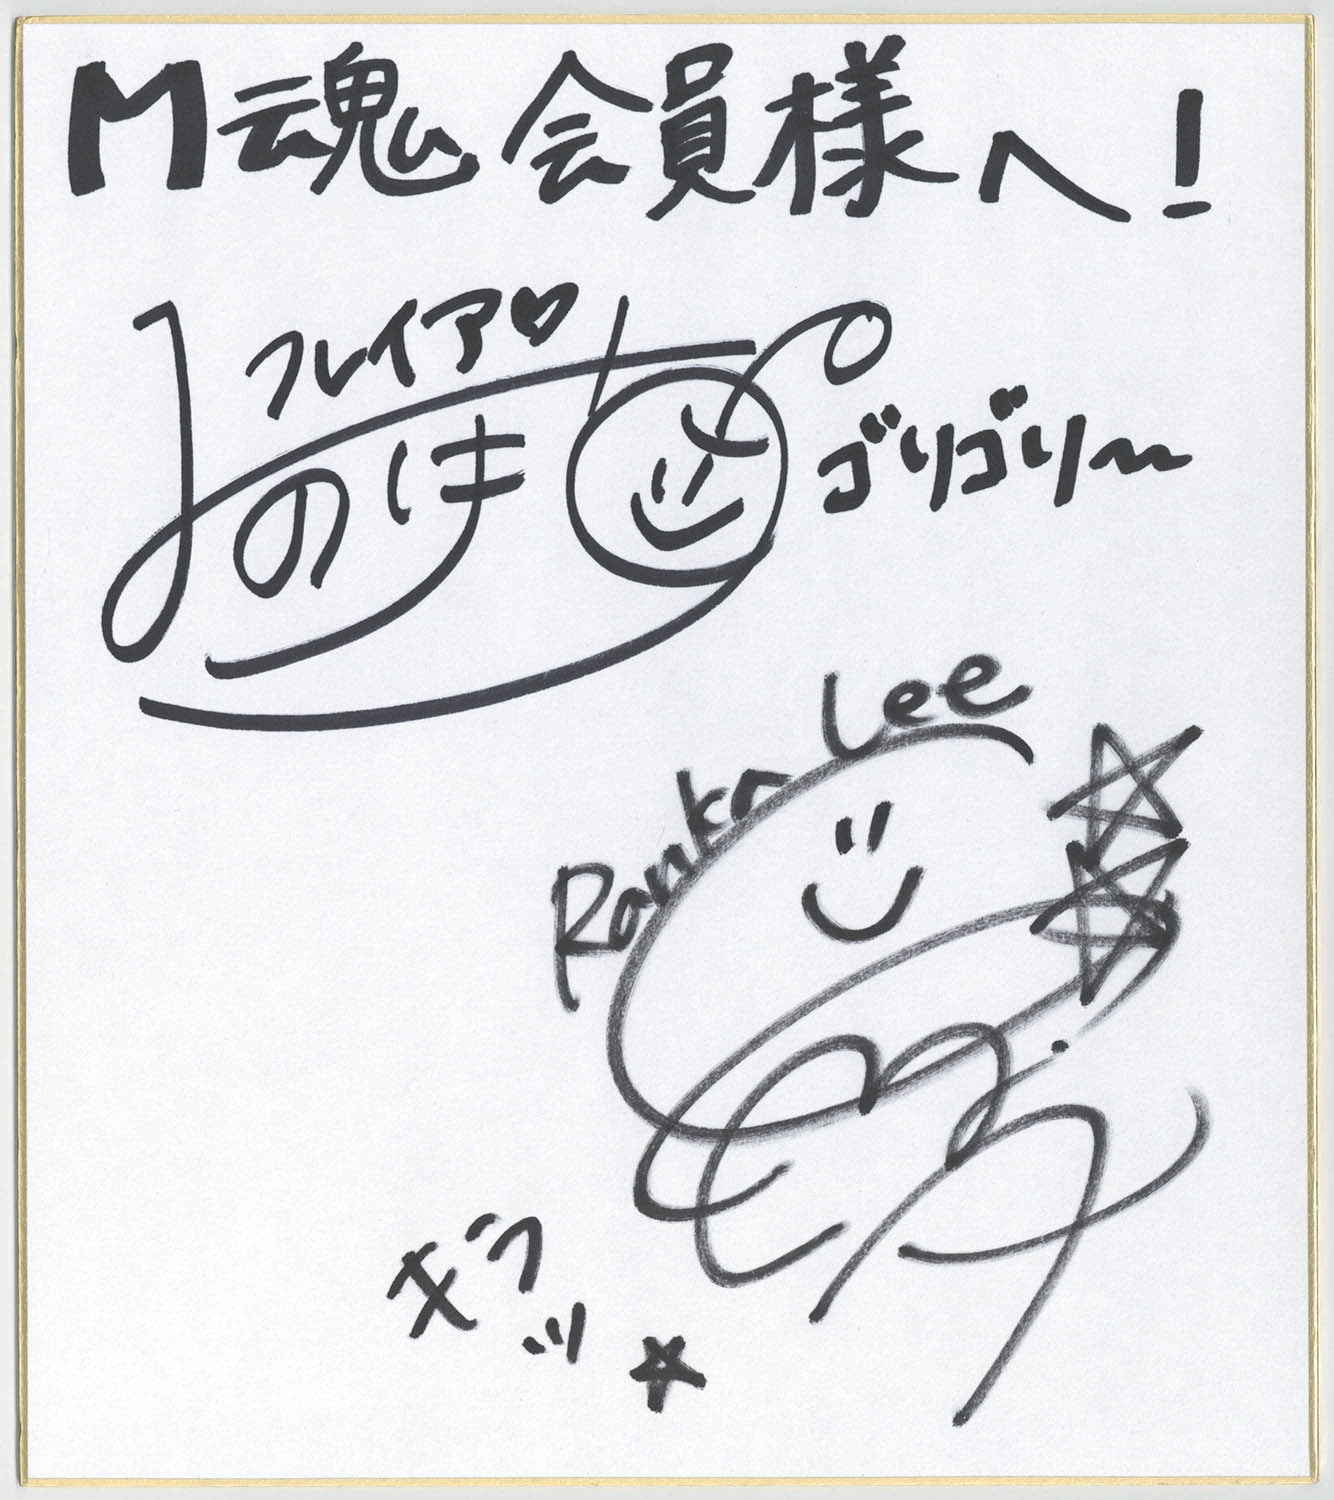 M魂 会員様へ!
フレイア♡
みのり
ゴリゴリ〜
Ranka Lee
キラッ☆